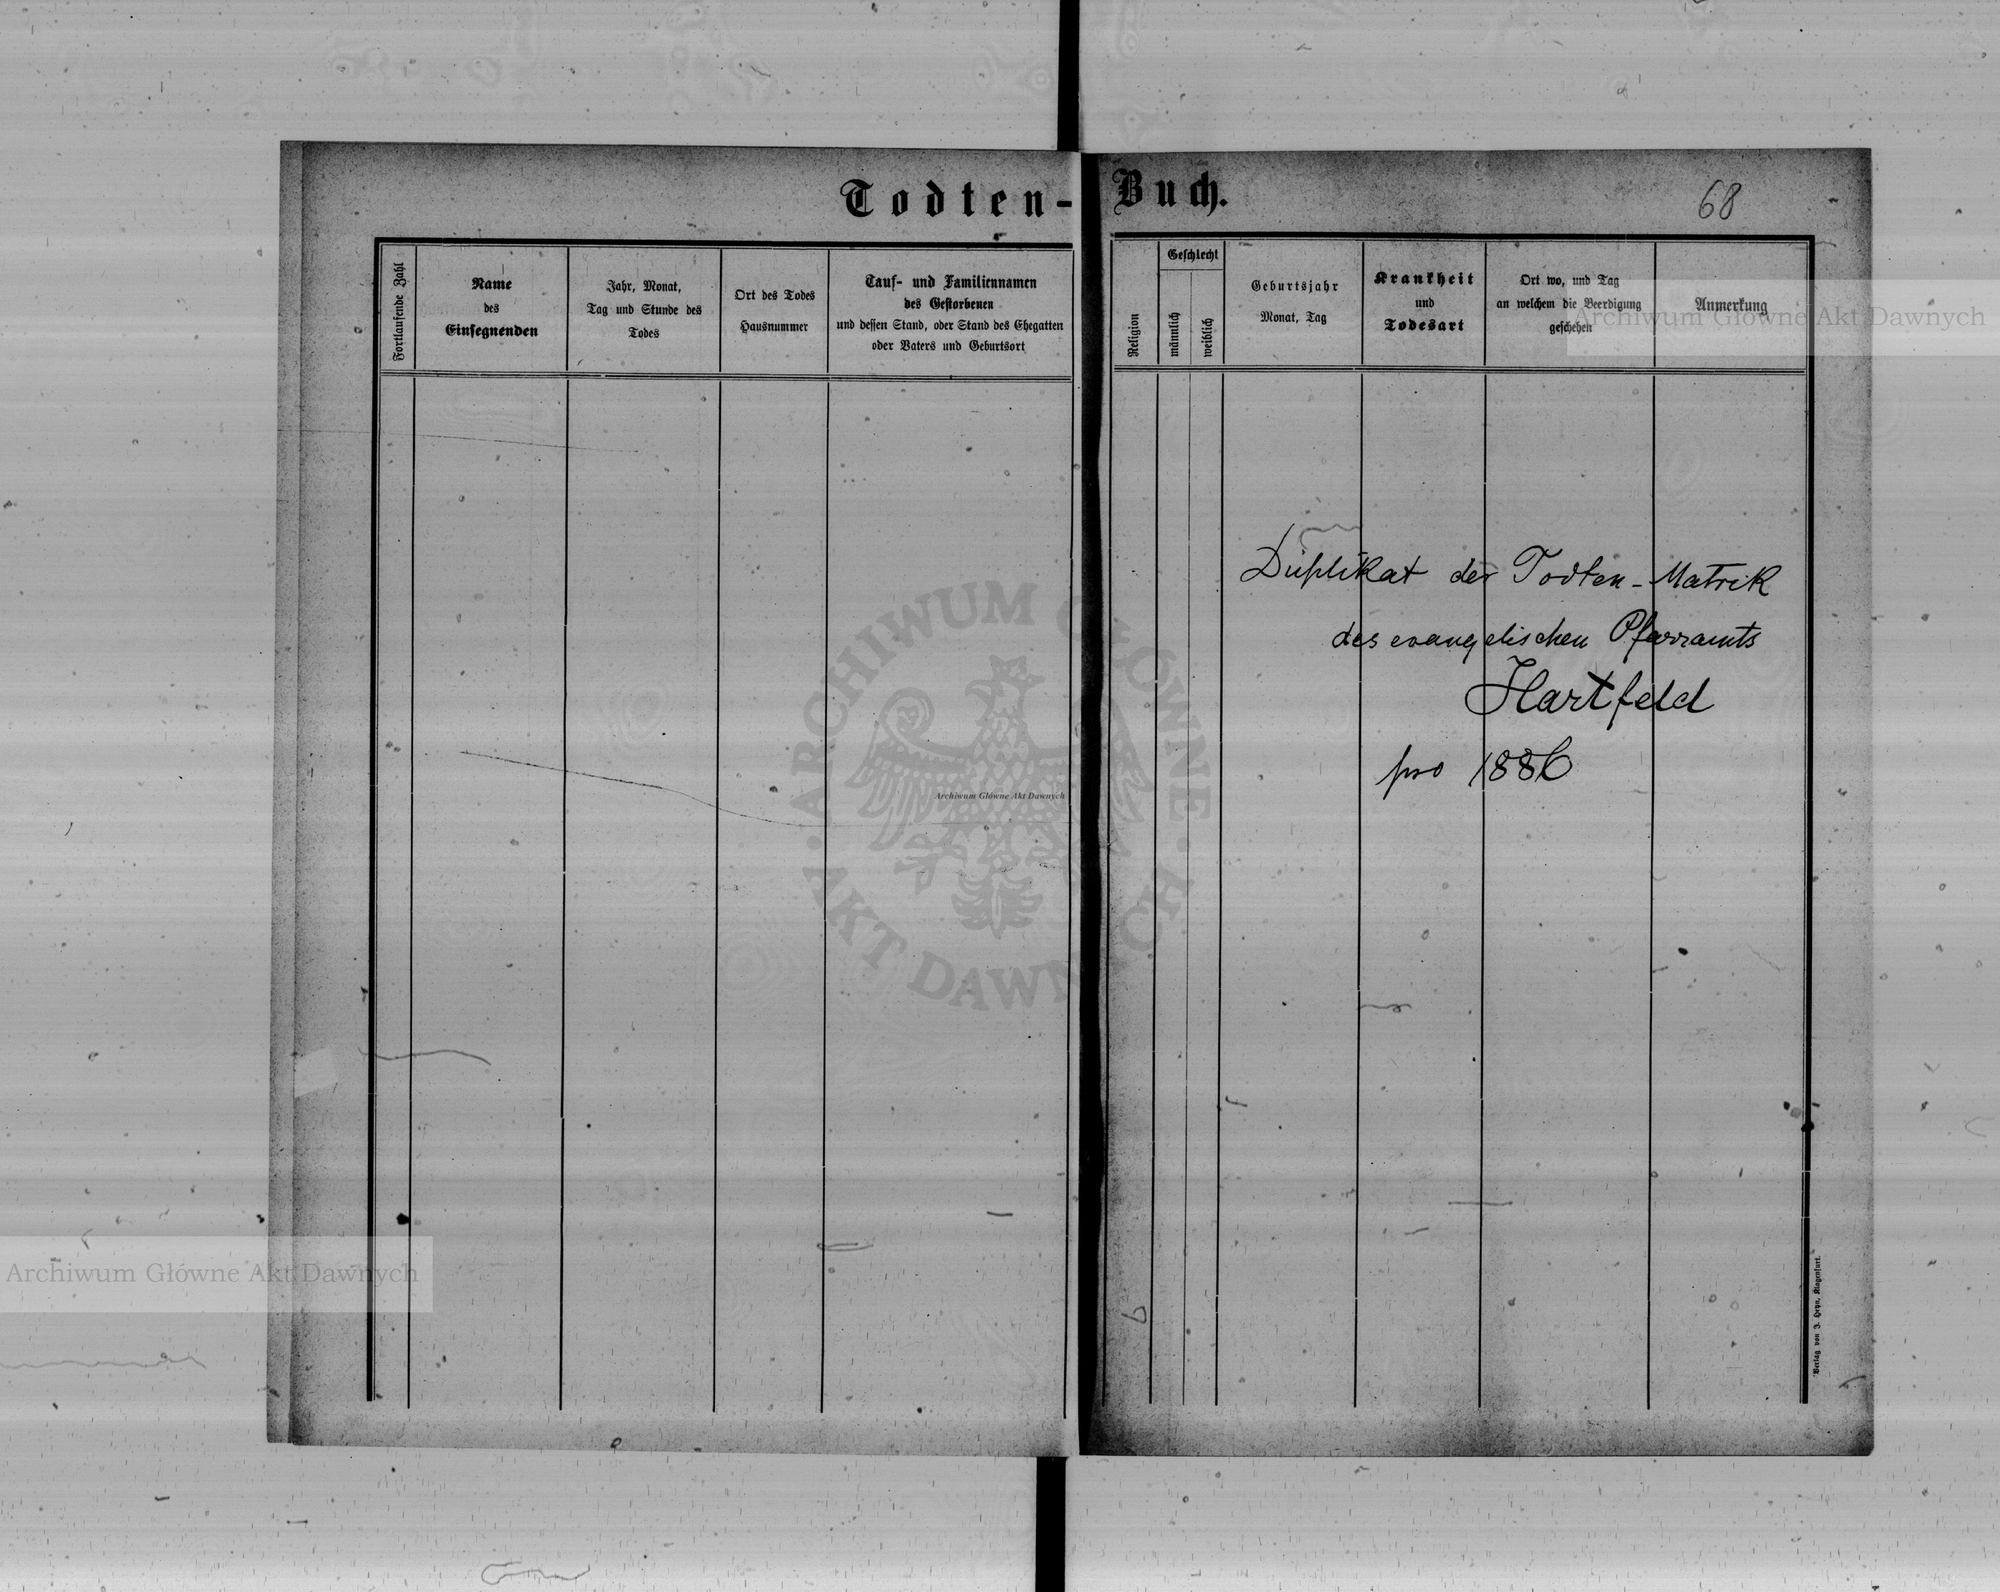 Todten-Buch.
68
Fortlaufende Zahl
Name
des
Einsegnenden
Jahr, Monat,
Tag und Stunde des
Todes
Ort des Todes
Hausnummer
Tauf- und Familiennamen
des Gestorbenen
und dessen Stand, oder Stand des Ehegatten
oder Vaters und Geburtsort
Religion
Geschlecht
männlich
weiblich
Geburtsjahr
Monat, Tag
Krankheit
und
Todesart
Ort wo, und Tag
an welchem die Beerdigung
geschehen
Anmerkung
Archiwum Główne Akt Dawnych
Duplikat der Todten-Matrik
des evangelischen Pfarramts
Hartfeld
pro 1886
ARCHIWUM GŁÓWNE · AKT DAWNYCH ·
Archiwum Główne Akt Dawnych
Archiwum Główne Akt Dawnych
Verlag von J. Heyn, Klagenfurt.